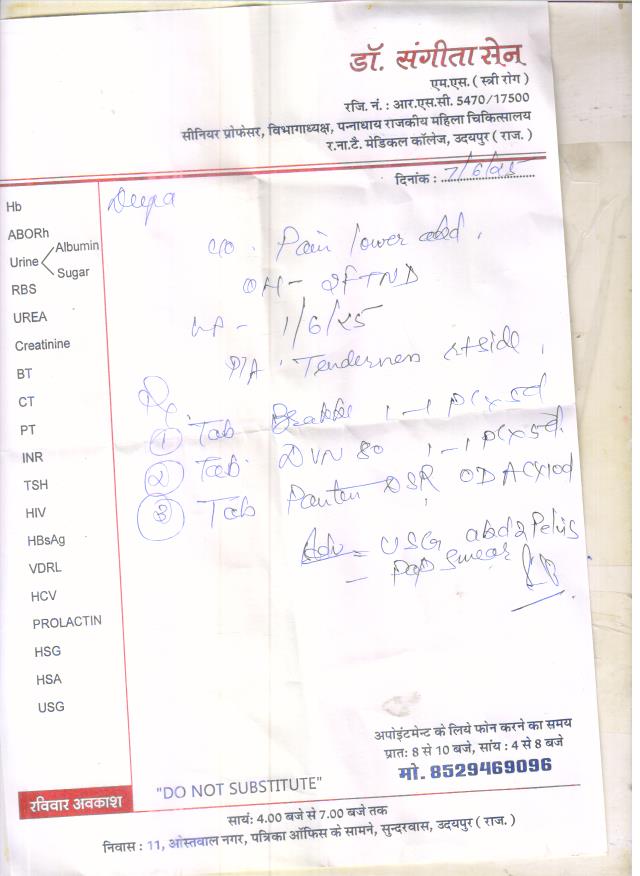 डॉ. संगीता सेन
एम.एस. ( स्त्री रोग )
रजि. नं. : आर.एस.सी. 5470/17500
सीनियर प्रोफेसर, विभागाध्यक्ष, पन्नाधाय राजकीय महिला चिकित्सालय
र.ना.टै. मेडिकल कॉलेज, उदयपुर ( राज. )
दिनांक : 7/6/25
Deepa
Hb
ABORh
Urine Albumin
Sugar
RBS
UREA
Creatinine
BT
CT
PT
INR
TSH
HIV
HBsAg
VDRL
HCV
PROLACTIN
HSG
HSA
USG
c/o. Pain lower abd.
OH - 2FTND
1/6/25
P/A : Tenderness side.
Rx
1 Tab 1-1 PC x 5d
2 Tab. DVN 80 1-1 PC x 5d
3 Tab DSR OD AC x 10d
Adv = USG abd & Pelvis
- Pap smear
अपोइंटमेन्ट के लिये फोन करने का समय
प्रातः 8 से 10 बजे, सांय : 4 से 8 बजे
मो. 8529469096
"DO NOT SUBSTITUTE"
रविवार अवकाश
सायं: 4.00 बजे से 7.00 बजे तक
निवास : 11, ओस्तवाल नगर, पत्रिका ऑफिस के सामने, सुन्दरवास, उदयपुर ( राज. )